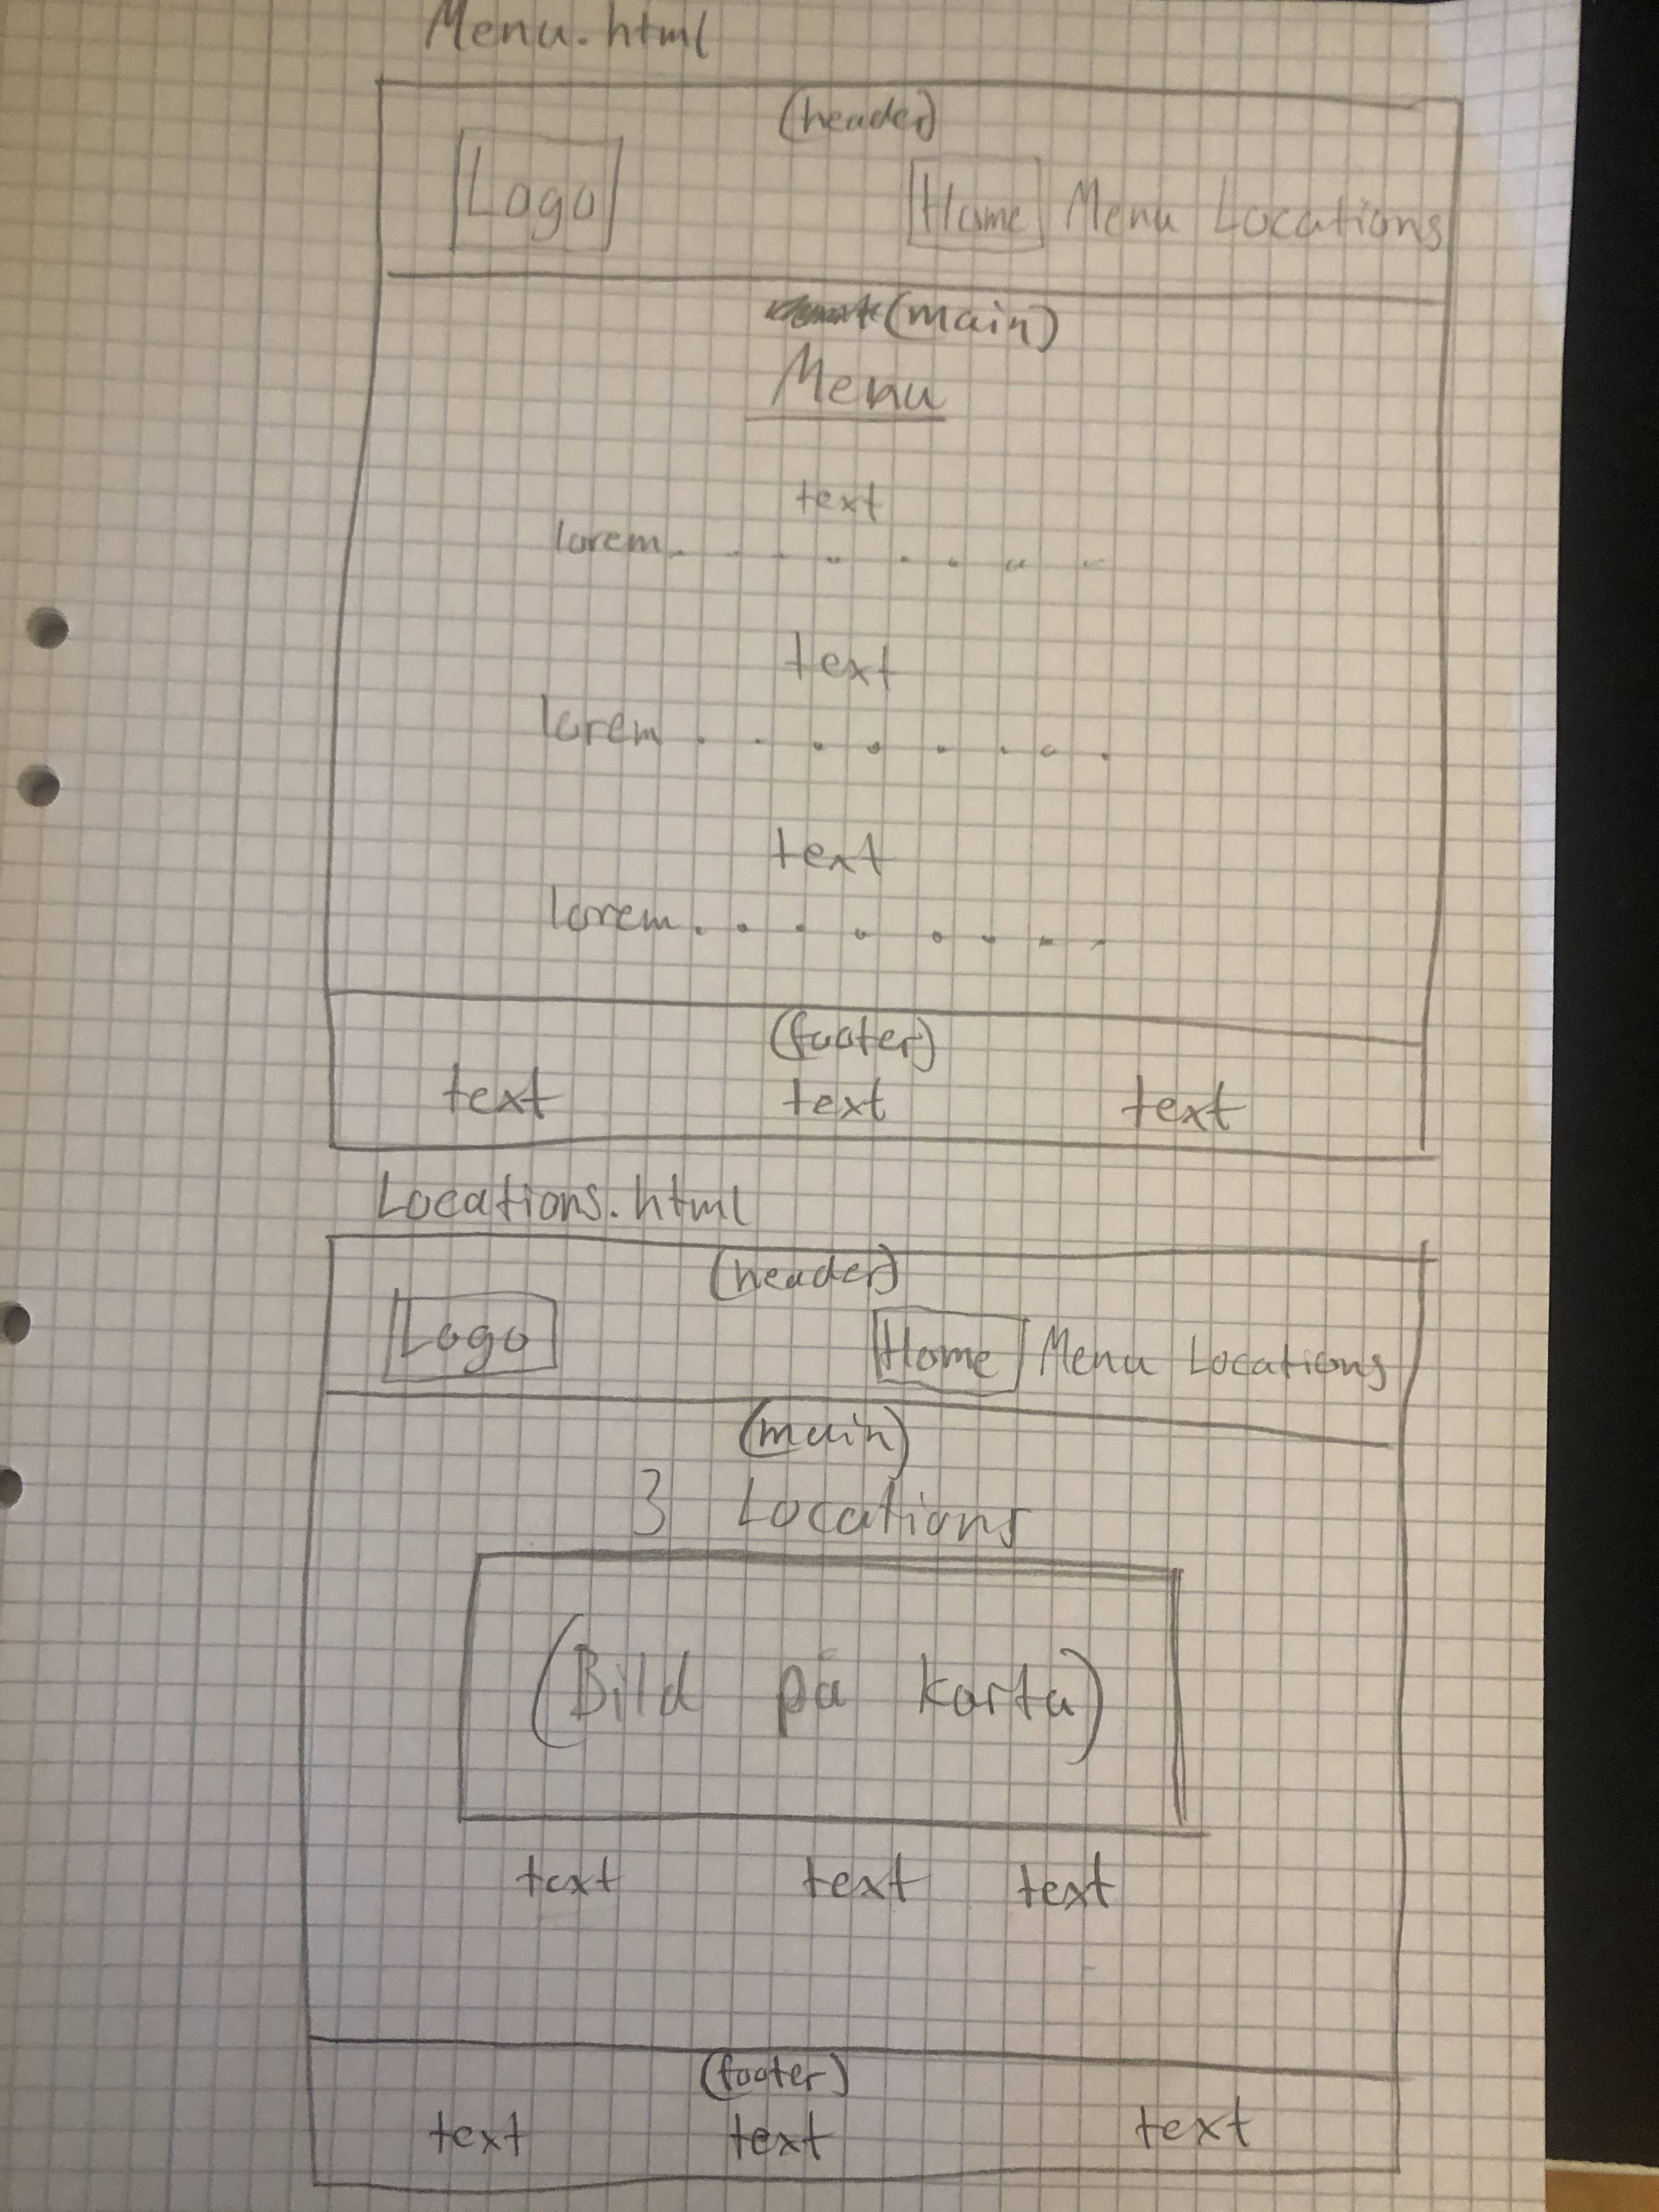 Menu.html
(header)
Logo Home Menu Locations
(main)
Menu
text
lorem. . . . . . . .
text
lorem . . . . . . . .
text
lorem. . . . . . . .
(footer)
text text text
Locations.html
(header)
Logo Home Menu Locations
(main)
3 Locations
(Bild på karta)
text text text
(footer)
text text text